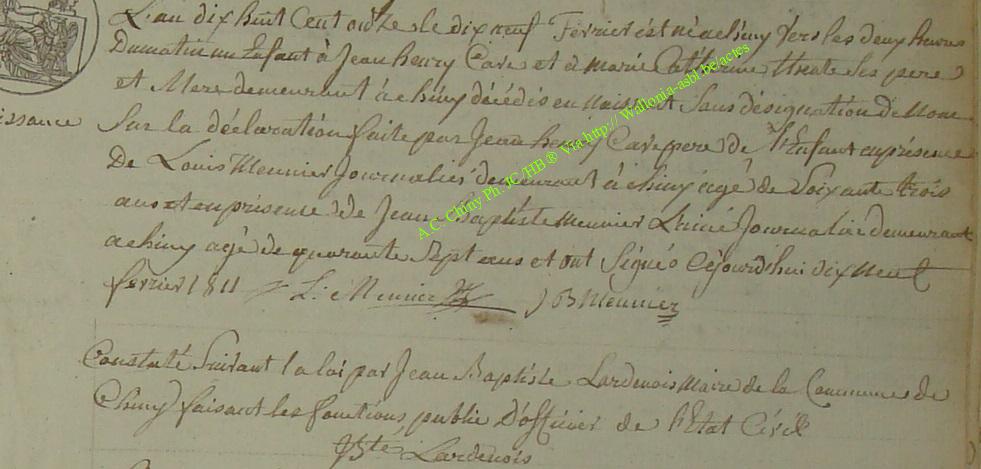 L'an dix huit Cent onze le dix neuf Fevrier est né a chiny vers les deux heures
Dumatin un Enfant à Jean henry Care et à marie Catherine les pere
et Mere demeurant à chiny décédés en Naissant Sans désignation de Nom
issance Sur la déclaration faite par Jean henry Care pere de l'Enfant en présence
De Louis Meunier Journalier demeurant à chiny agé de Soixante trois
ans et en présence de Jean Baptiste Meunier L'ainé Journalié demeurant
a chiny agé de quarante Sept ans et ont Signés Cejourd'hui dix Neuf
fevrier 1811 L: Meunier JB Meunier
Constaté Suivant la loi par Jean Baptiste Lardenois Maire de la Commune de
Chiny faisant les fonctions public D'officier de l'Etat Civil
JBte Lardenois
A.C. Chiny Ph. JC /HB ® Via http:// Wallonia-asbl.be/actes